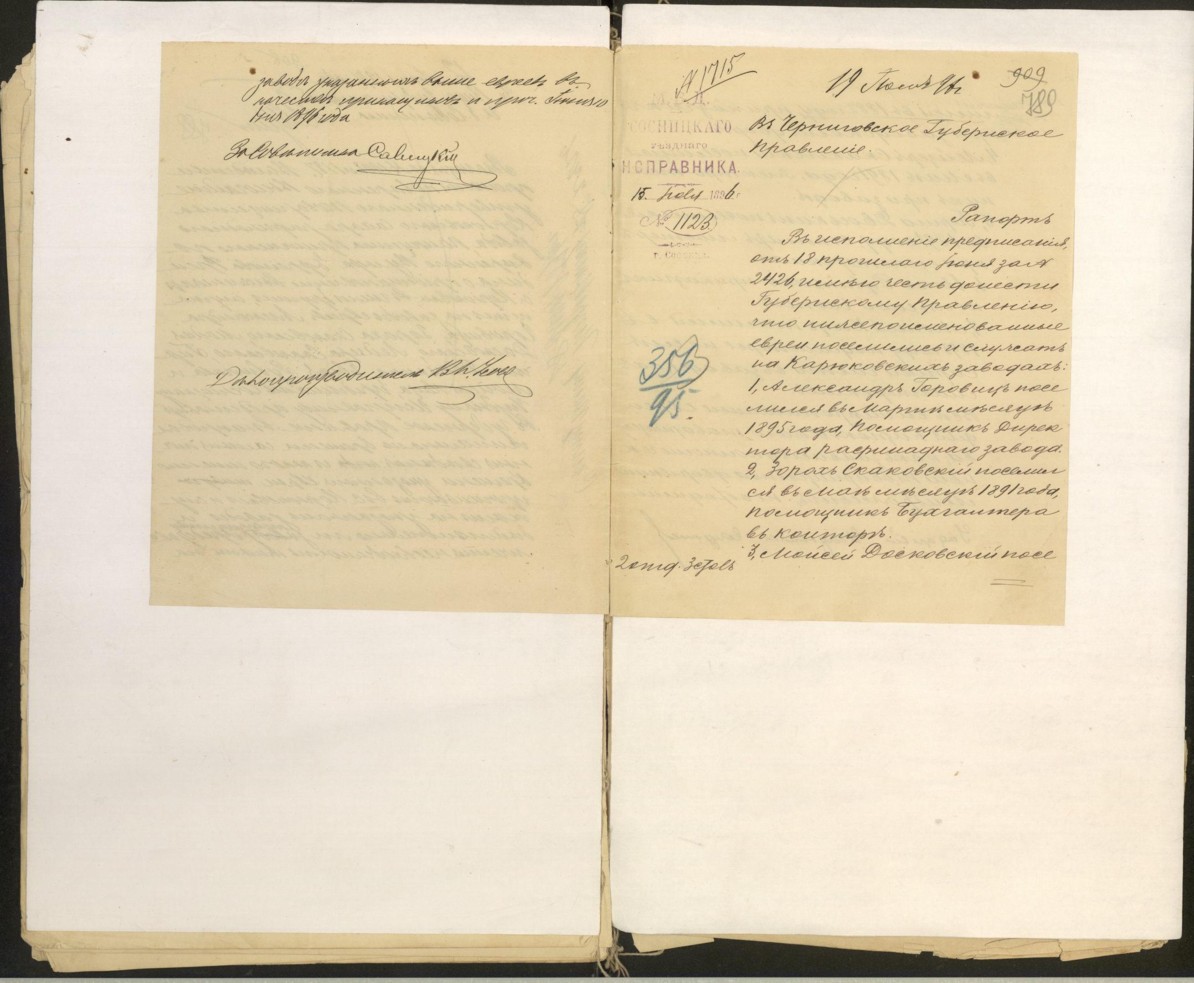 заводѣ указанныхъ выше евреевъ въ
качествѣ прикащиковъ и проч.
1896 года
За Совѣтника Савицкій
Дѣлопроизводитель
№ 1715
19 Іюля 96 г.
909
789
М. В. Д.
СОСНИЦКАГО
УѢЗДНАГО
ИСПРАВНИКА.
15 Іюля 1896 г.
№ 1123
г. Сосница.
356
95.
2 отд. 3 столъ
Въ Черниговское Губернское
Правленіе.
Рапортъ
Въ исполненіе предписанія,
отъ 18 прошлаго Іюня за №
2426, имѣю честь донести
Губернскому Правленію,
что нижепоименованные
евреи поселились и служатъ
на Карюковскихъ заводахъ:
1, Александръ Горовицъ посе
лился въ Мартѣ мѣсяцѣ
1895 года, Помощникъ Дирек
тора рафинаднаго завода.
2, Зорохъ Скаковскій поселил
ся въ Маѣ мѣсяцѣ 1891 года,
помощникъ Бухгалтера
въ конторѣ.
3, Моисей Досковскій посе